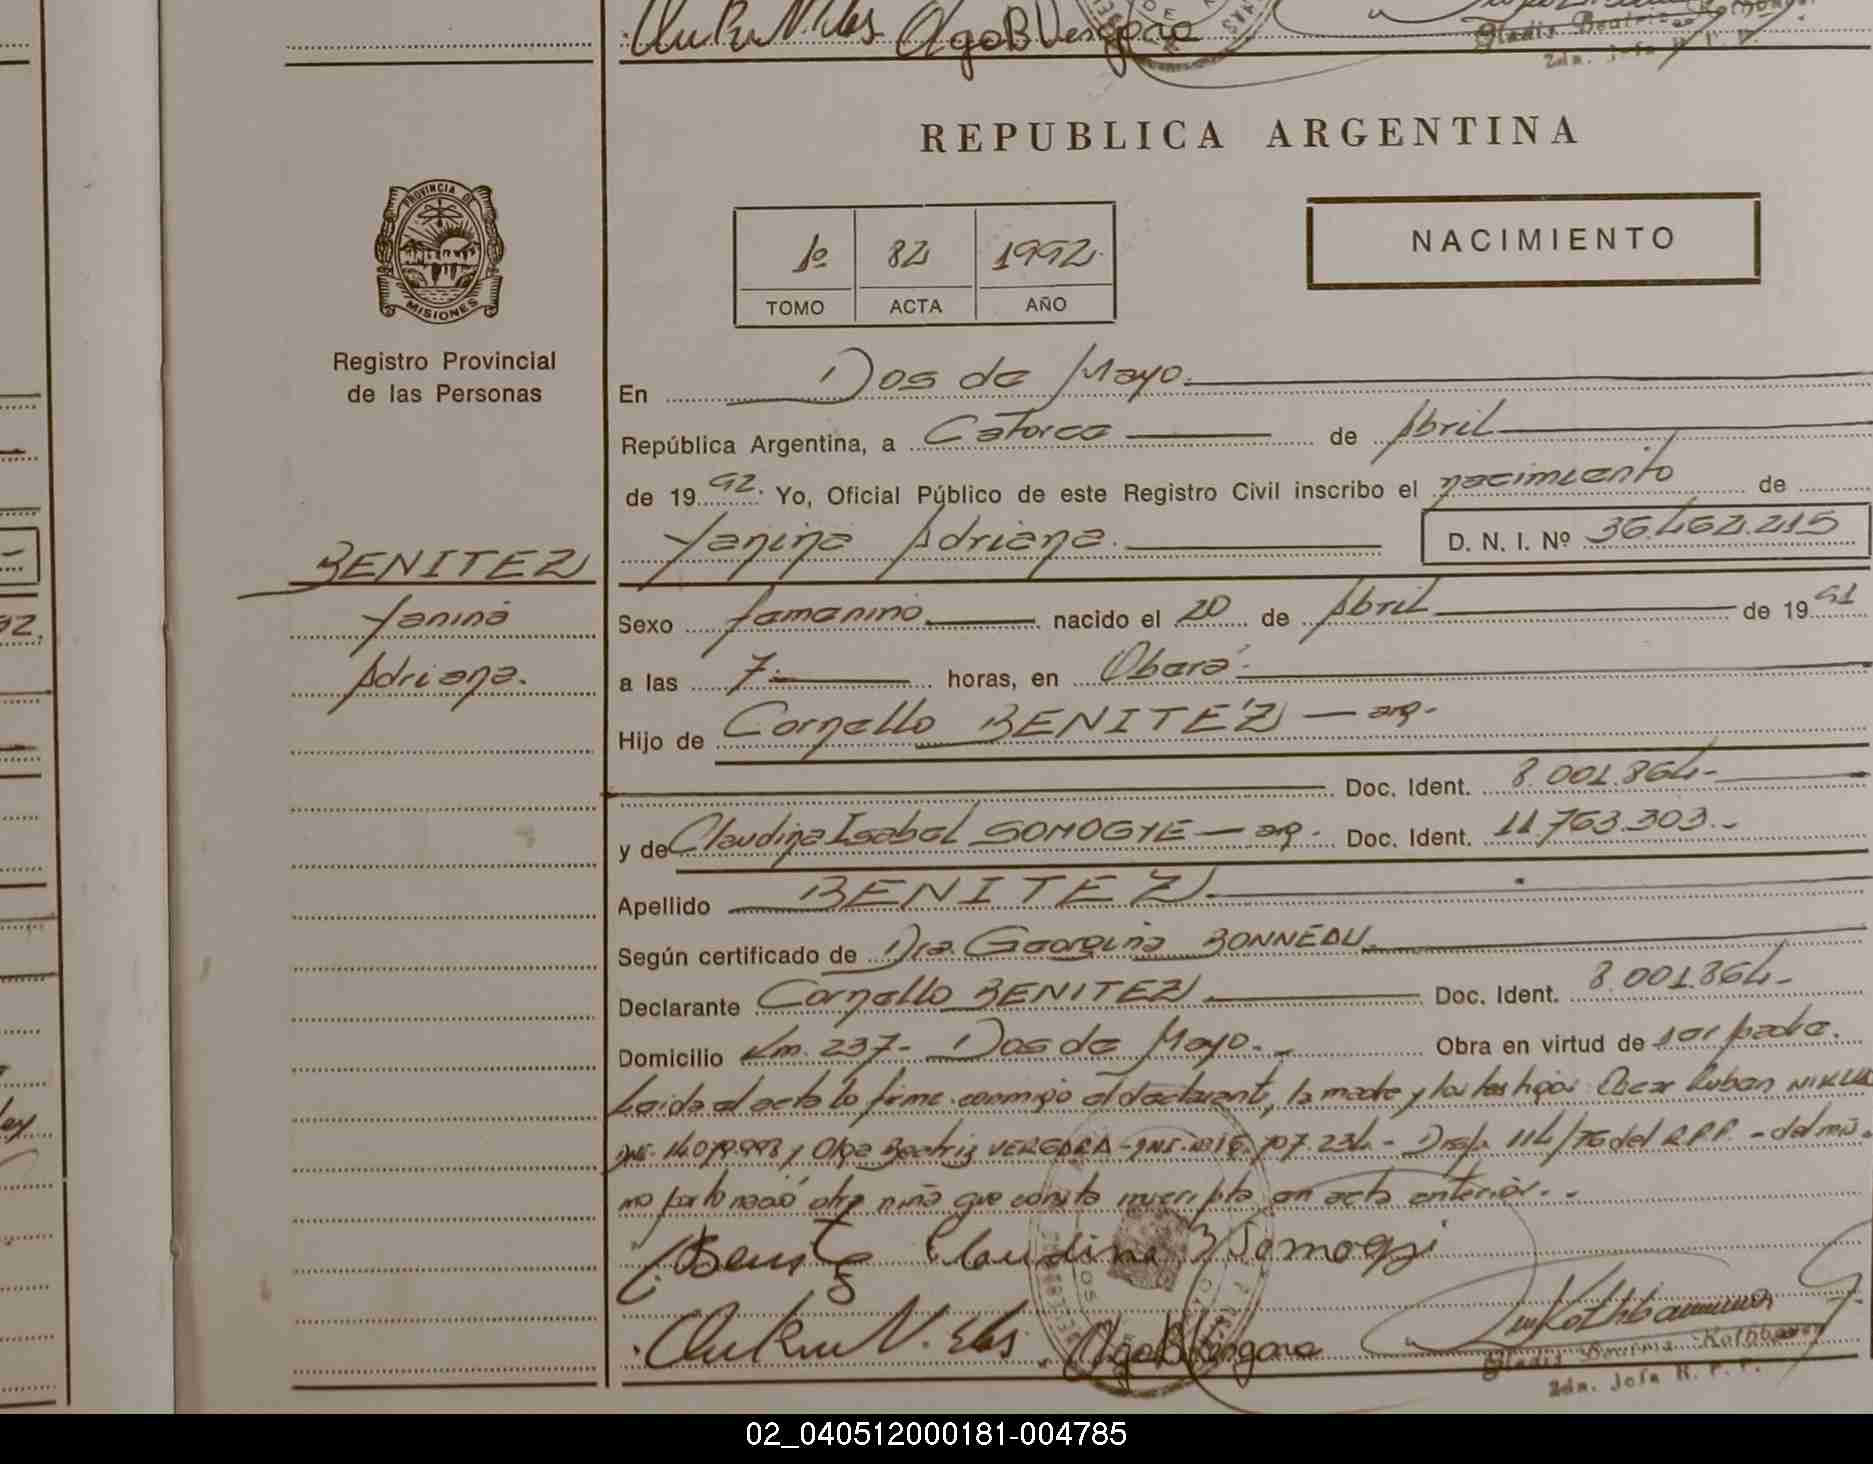 REPUBLICA ARGENTINA
PROVINCIA DE
MISIONES
Registro Provincial
de las Personas
1º 82 1992.
TOMO ACTA AÑO
NACIMIENTO
En Dos de Mayo.
República Argentina, a Catorce de Abril
de 1992. Yo, Oficial Público de este Registro Civil inscribo el nacimiento de
Yanina Adriana. D. N. I. Nº 36.462.215
BENITEZ
Yanina
Adriana.
Sexo femenino nacido el 20 de Abril de 1991
a las 7. horas, en Oberá.
Hijo de Cornelio BENITEZ — arg.
Doc. Ident. 8.001.864-
y de Claudina Isabel SOMOGYE — arg. Doc. Ident. 11.763.303.-
Apellido BENITEZ.
Según certificado de Dra. Georgina BONNEAU
Declarante Cornelio BENITEZ Doc. Ident. 8.001.864-
Domicilio Km. 237- Dos de Mayo. Obra en virtud de ser padre.
Leida el acta lo firma conmigo el declarante, la madre y los testigos Oscar Ruben
y Olga Beatriz VERGARA - 114/76 del R.P.P. - del mis-
mo parto nació otra niña que consta inscripta en acta anterior. -
Claudina Somogyi
Olga B Vergara
Gladis Beatriz
2da. Jefa R. P. P.
02_040512000181-004785